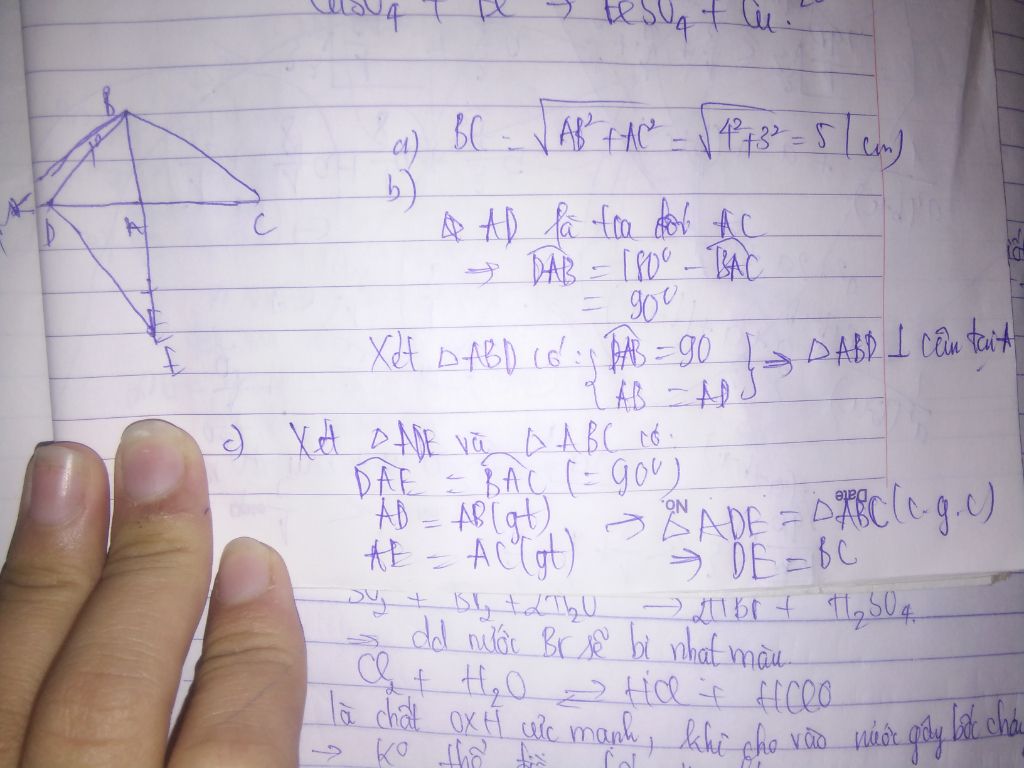 CuSO₄ + Fe → FeSO₄ + Cu.
B
D A C
E
E
a) BC = √AB² + AC² = √4² + 3² = 5 (cm)
b)
AD là tia đối AC
⇒ DAB = 180⁰ - BAC
= 90⁰
Xét △ABD có: { DAB = 90
AB = AD } ⇒ △ABD ⊥ cân tại A
c) Xét △ADE và △ABC có:
DAE = BAC (= 90⁰)
AD = AB (gt) → △ADE = △ABC (c.g.c)
No Date
AE = AC (gt) → DE = BC
SO₂ + Br₂ + 2H₂O → 2HBr + H₂SO₄.
⇒ dd nước Br sẽ bị nhạt màu.
Cl₂ + H₂O ⇌ HCl + HClO
là chất OXH cực mạnh, khi cho vào nước gây bốc cháy
→ Ko thể